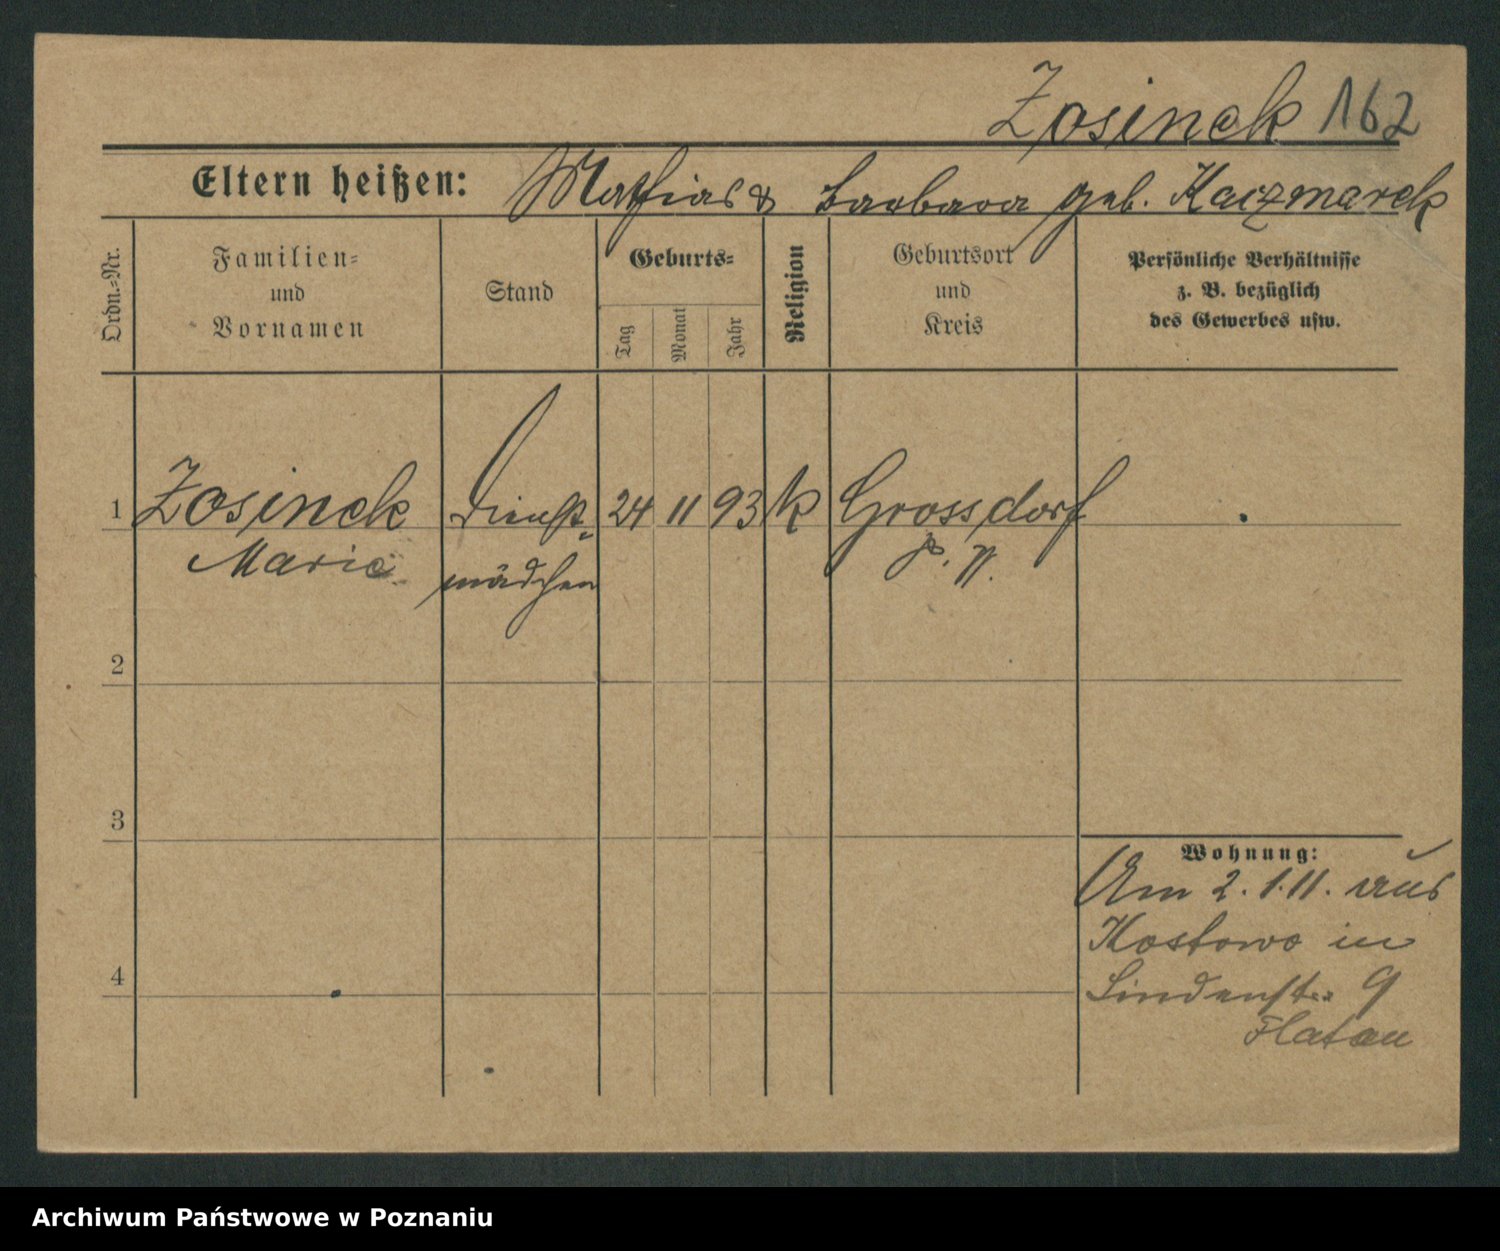 Zosinek 162
Eltern heißen: Mathias & Barbara geb. Kaczmarek
Ordn.-Nr.
Familien-
und
Vornamen
Stand
Geburts-
Tag
Monat
Jahr
Religion
Geburtsort
und
Kreis
Persönliche Verhältnisse
z. B. bezüglich
des Gewerbes usw.
1 Zosinek Dienst- 24 11 93 k Grossdorf
Marie mädchen
2
3
4
Wohnung:
Am 2. 1. 11. aus
Kostowo in
Lindenstr. 9
Flatau
Archiwum Państwowe w Poznaniu